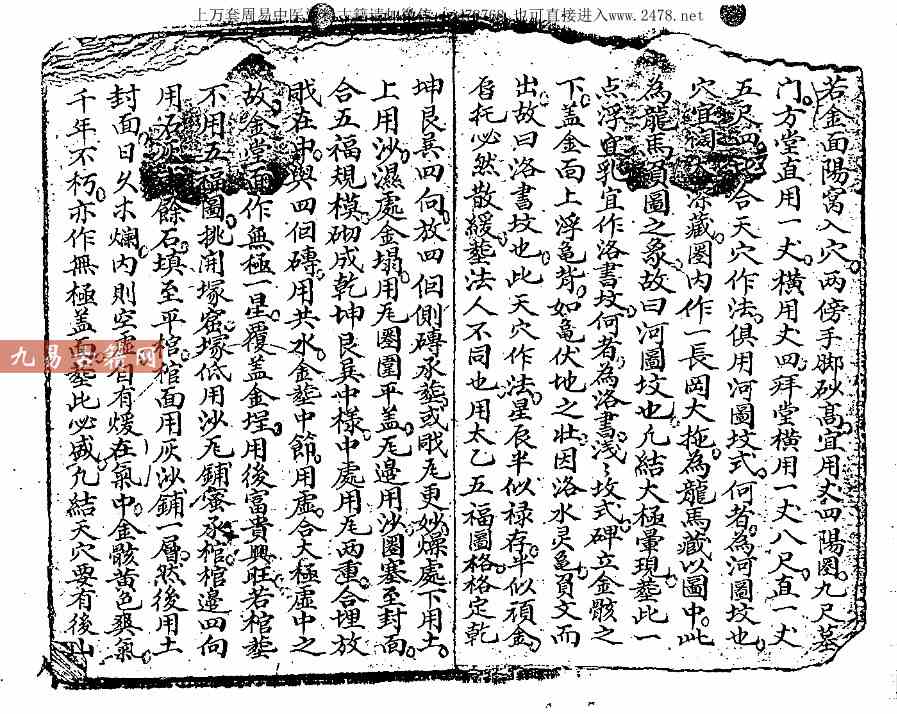 上万套周易中医 古籍请加微信 2478768 也可直接进入www.2478.net
若金面陽窩入穴两傍手脚砂高宜用丈四陽圏九尺墓
门方堂直用一丈横用丈四拜堂横用一丈八尺直一丈
五尺四 合天穴作法俱用河圖坟式何者為河圖坟也
穴宜 深藏圏内作一長岡大 為龍馬藏以圖中此
為龍馬負圖之象故曰河圖坟也凢結大極暈現塟此一
点浮 乳宜作洛書坟何者為洛書浅浅坟式碑立金骸之
下盖金面上浮亀背如亀伏地之壮因洛水灵亀負文而
出故曰洛書坟也此天穴作法星辰半似禄存半似頑金
唇托必然散緩塟法人不同也用太乙五福圖格格定乾
坤艮巽四向放四佪側磚承塟或戝瓦更妙燥處下用土
上用沙濕處金塌用瓦圏圍平盖瓦邉用沙圏塞至封面
合五福規模砌成乾坤艮巽中様中處用瓦两重合埋放
戝在中與四佪磚用共水金塟中節用虚合大極虚中之
故金堂面作無極一星覆盖金埕用後富貴興旺若棺塟
不用五福圖挑開塚窰塚低用沙瓦鋪蜜承棺棺邉四向
用石灰 餘石填至平棺棺面用灰沙鋪一層然後用土
封面日久木爛内則空虚自有煖在氣中金骸黄色爽氣
千年不朽亦作無極盖面塟此必盛凢結天穴要有後山
九易古籍网